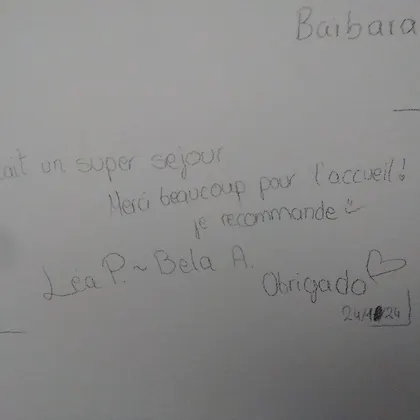 Barbara
ait un super sejour
Merci beaucoup pour l'accueil!
je recommande
Léa P. ~ Bela A.
Obrigado